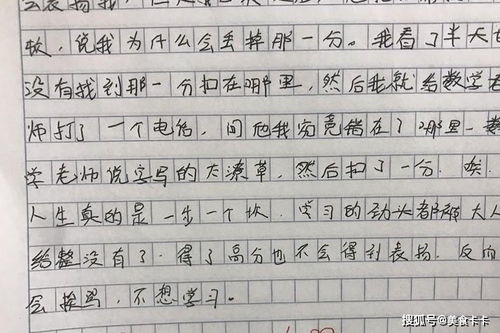 会表扬我，
软，说我为什么会丢掉那一分。我看了半天
没有找到那一分扣在哪里，然后我就给数学老
师打了一个电话，问他我究竟错在了哪里。数
学老师说字写的太潦草，然后扣了一分。唉.
人生真的是一步一个坎.学习的劲头都被大人
给整没有了.得了高分也不会得到表扬.反向
会挨骂，不想学习。
搜狐号@美食卡卡